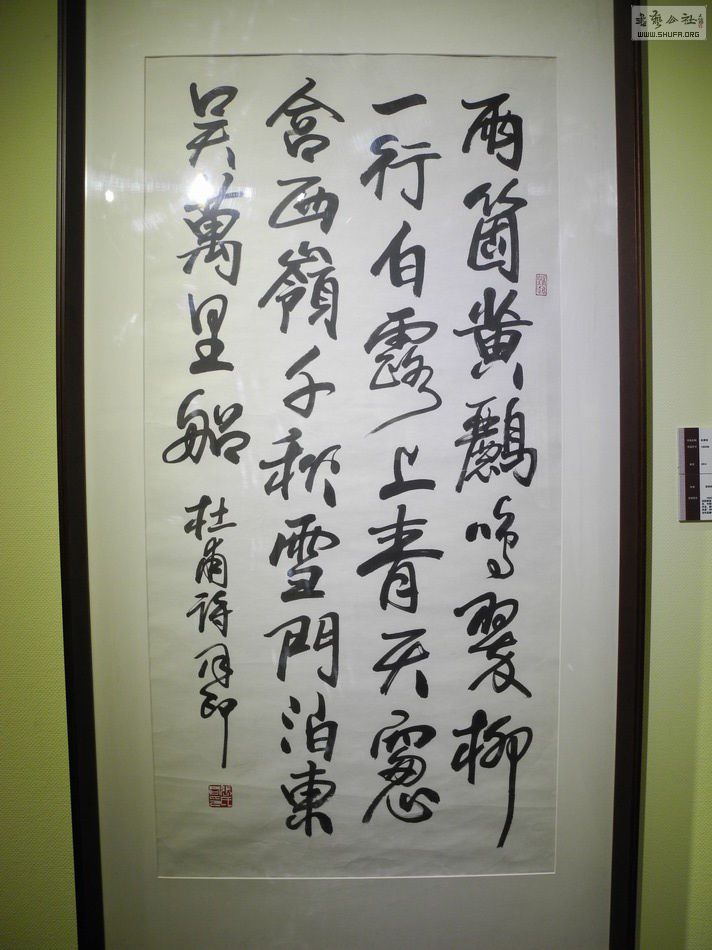 兩箇黄鸝鳴翠柳
一行白露上青天窻
含西嶺千秋雪門泊東
吳萬里船
杜甫詩
书艺公社
WWW.SHUFA.ORG